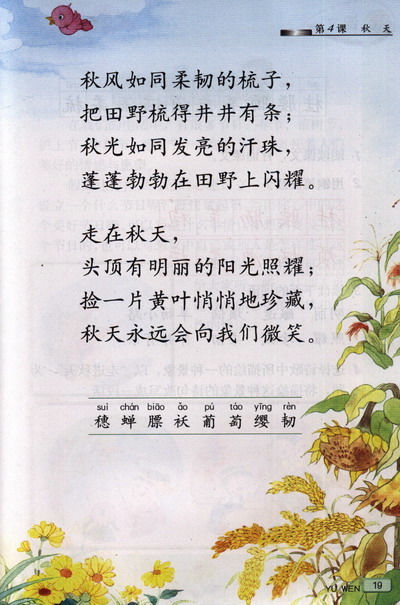 第4课 秋天
秋风如同柔韧的梳子，
把田野梳得井井有条；
秋光如同发亮的汗珠，
蓬蓬勃勃在田野上闪耀。
走在秋天，
头顶有明丽的阳光照耀；
捡一片黄叶悄悄地珍藏，
秋天永远会向我们微笑。
suì chán biāo ǎo pú táo yīng rèn
穗 蝉 膘 袄 葡 萄 缨 韧
YU WEN 19